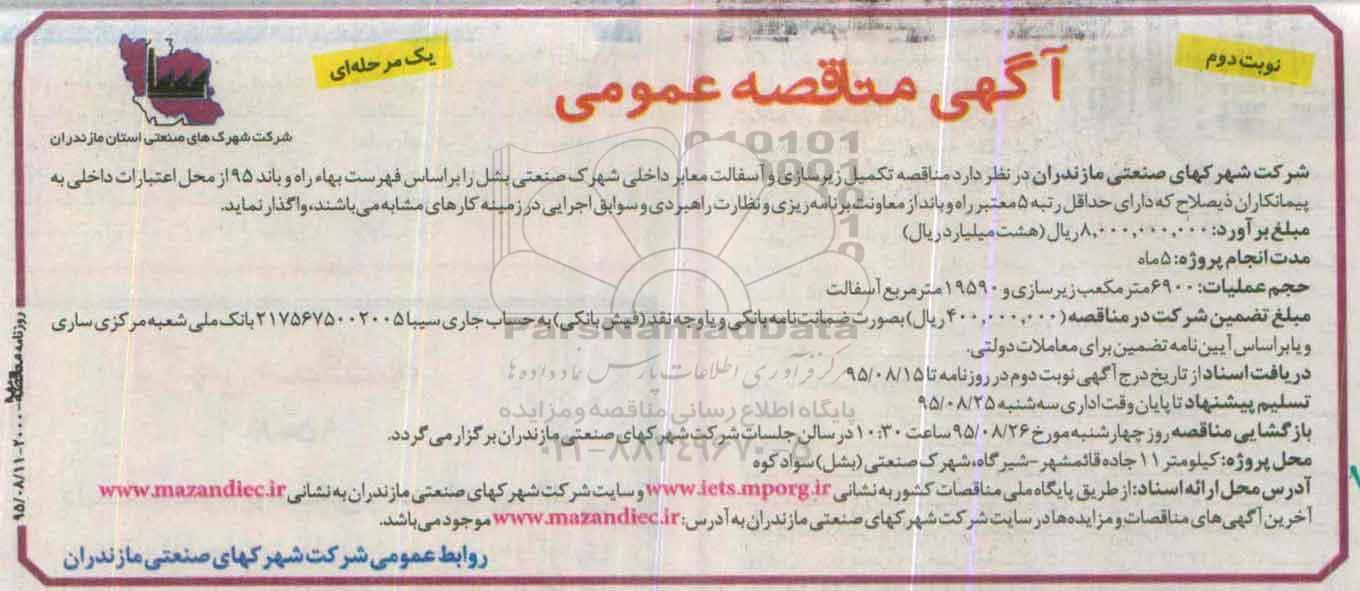 نوبت دوم
آگهی مناقصه عمومی
یک مرحله‌ای
شرکت شهرک های صنعتی استان مازندران
شرکت شهرکهای صنعتی مازندران در نظر دارد مناقصه تکمیل زیرسازی و آسفالت معابر داخلی شهرک صنعتی بشل را براساس فهرست بهاء راه و باند ۹۵ از محل اعتبارات داخلی به
پیمانکاران ذیصلاح که دارای حداقل رتبه ۵ معتبر راه و باند از معاونت برنامه‌ریزی و نظارت راهبردی و سوابق اجرایی در زمینه کارهای مشابه می‌باشند، واگذار نماید.
مبلغ برآورد: ۸,۰۰۰,۰۰۰,۰۰۰ ریال (هشت میلیارد ریال)
مدت انجام پروژه: ۵ ماه
حجم عملیات: ۶۹۰۰ متر مکعب زیرسازی و ۱۹۵۹۰ متر مربع آسفالت
مبلغ تضمین شرکت در مناقصه (۴۰۰,۰۰۰,۰۰۰ ریال) بصورت ضمانت‌نامه بانکی و یا وجه نقد (فیش بانکی) به حساب جاری سیبا ۲۱۷۵۶۷۵۰۰۲۰۰۵ بانک ملی شعبه مرکزی ساری
و یا براساس آیین‌نامه تضمین برای معاملات دولتی.
دریافت اسناد از تاریخ درج آگهی نوبت دوم در روزنامه تا ۹۵/۰۸/۱۵
تسلیم پیشنهاد تا پایان وقت اداری سه‌شنبه ۹۵/۰۸/۲۵
بازگشایی مناقصه روز چهارشنبه مورخ ۹۵/۰۸/۲۶ ساعت ۱۰:۳۰ در سالن جلسات شرکت شهرکهای صنعتی مازندران برگزار می گردد.
محل پروژه: کیلومتر ۱۱ جاده قائمشهر-شیرگاه، شهرک صنعتی (بشل) سوادکوه
آدرس محل ارائه اسناد: از طریق پایگاه ملی مناقصات کشور به نشانی www.iets.mporg.ir و سایت شرکت شهرکهای صنعتی مازندران به نشانی www.mazandiec.ir
آخرین آگهی های مناقصات و مزایده‌ها در سایت شرکت شهرکهای صنعتی مازندران به آدرس: www.mazandiec.ir موجود می‌باشد.
روابط عمومی شرکت شهرکهای صنعتی مازندران
ParsNamadData
مرکز فرآوری اطلاعات پارس نماد داده ها
پایگاه اطلاع رسانی مناقصه و مزایده
۰۲۱-۸۸۳۴۹۶۷۰-۵
روزنامه ۹۵/۰۸/۱۱-۲۰۰۰